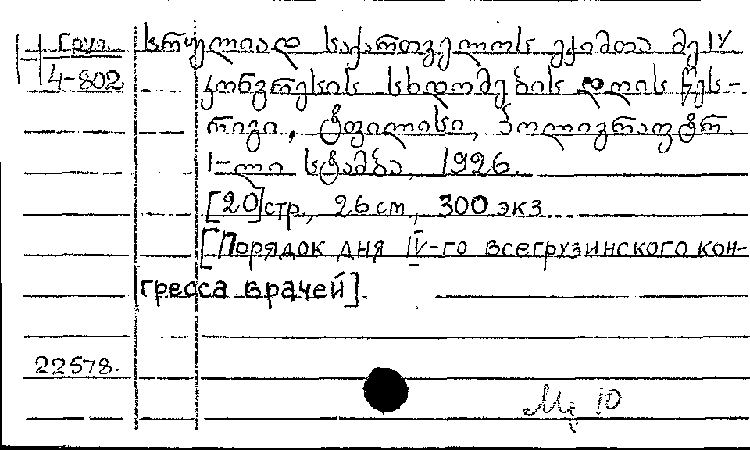 Груз.
4-802
სრულიად საქართველოს ექიმთა მე IV
კონგრესის სხდომების დღის წეს-
რიგი. ტფილისი, პოლიგრაფტრ.
1-ლი სტამბა, 1926.
[20]стр., 26 см, 300 экз.
[Порядок дня IV-го всегрузинского кон-
гресса врачей].
22578.
10